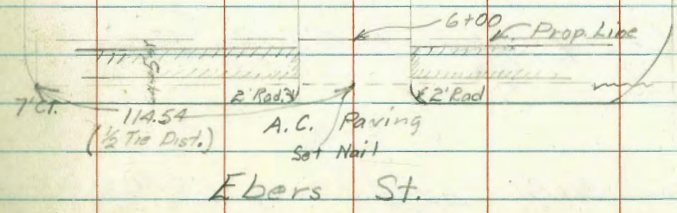 6+00
Prop. Line
7' Ct.
114.54
(½ Tie Dist.)
2' Rad.
2' Rad
A.C. Paving
Set Nail
Ebers St.